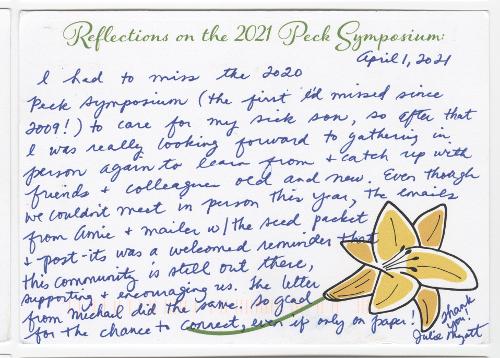 Reflections on the 2021 Peck Symposium:
April 1, 2021
I had to miss the 2020
Peck Symposium (the first I'd missed since
2009!) to care for my sick son, so after that
I was really looking forward to gathering in
person again to learn from + catch up with
friends + colleagues old and new. Even though
we couldn't meet in person this year, the emails
from Amie + mailer w/the seed packet
+ post-its was a welcomed reminder that
this community is still out there,
supporting + encouraging us. The letter
from Michail did the same. So glad
for the chance to connect, even if only on paper!
Thank
you!
Julie